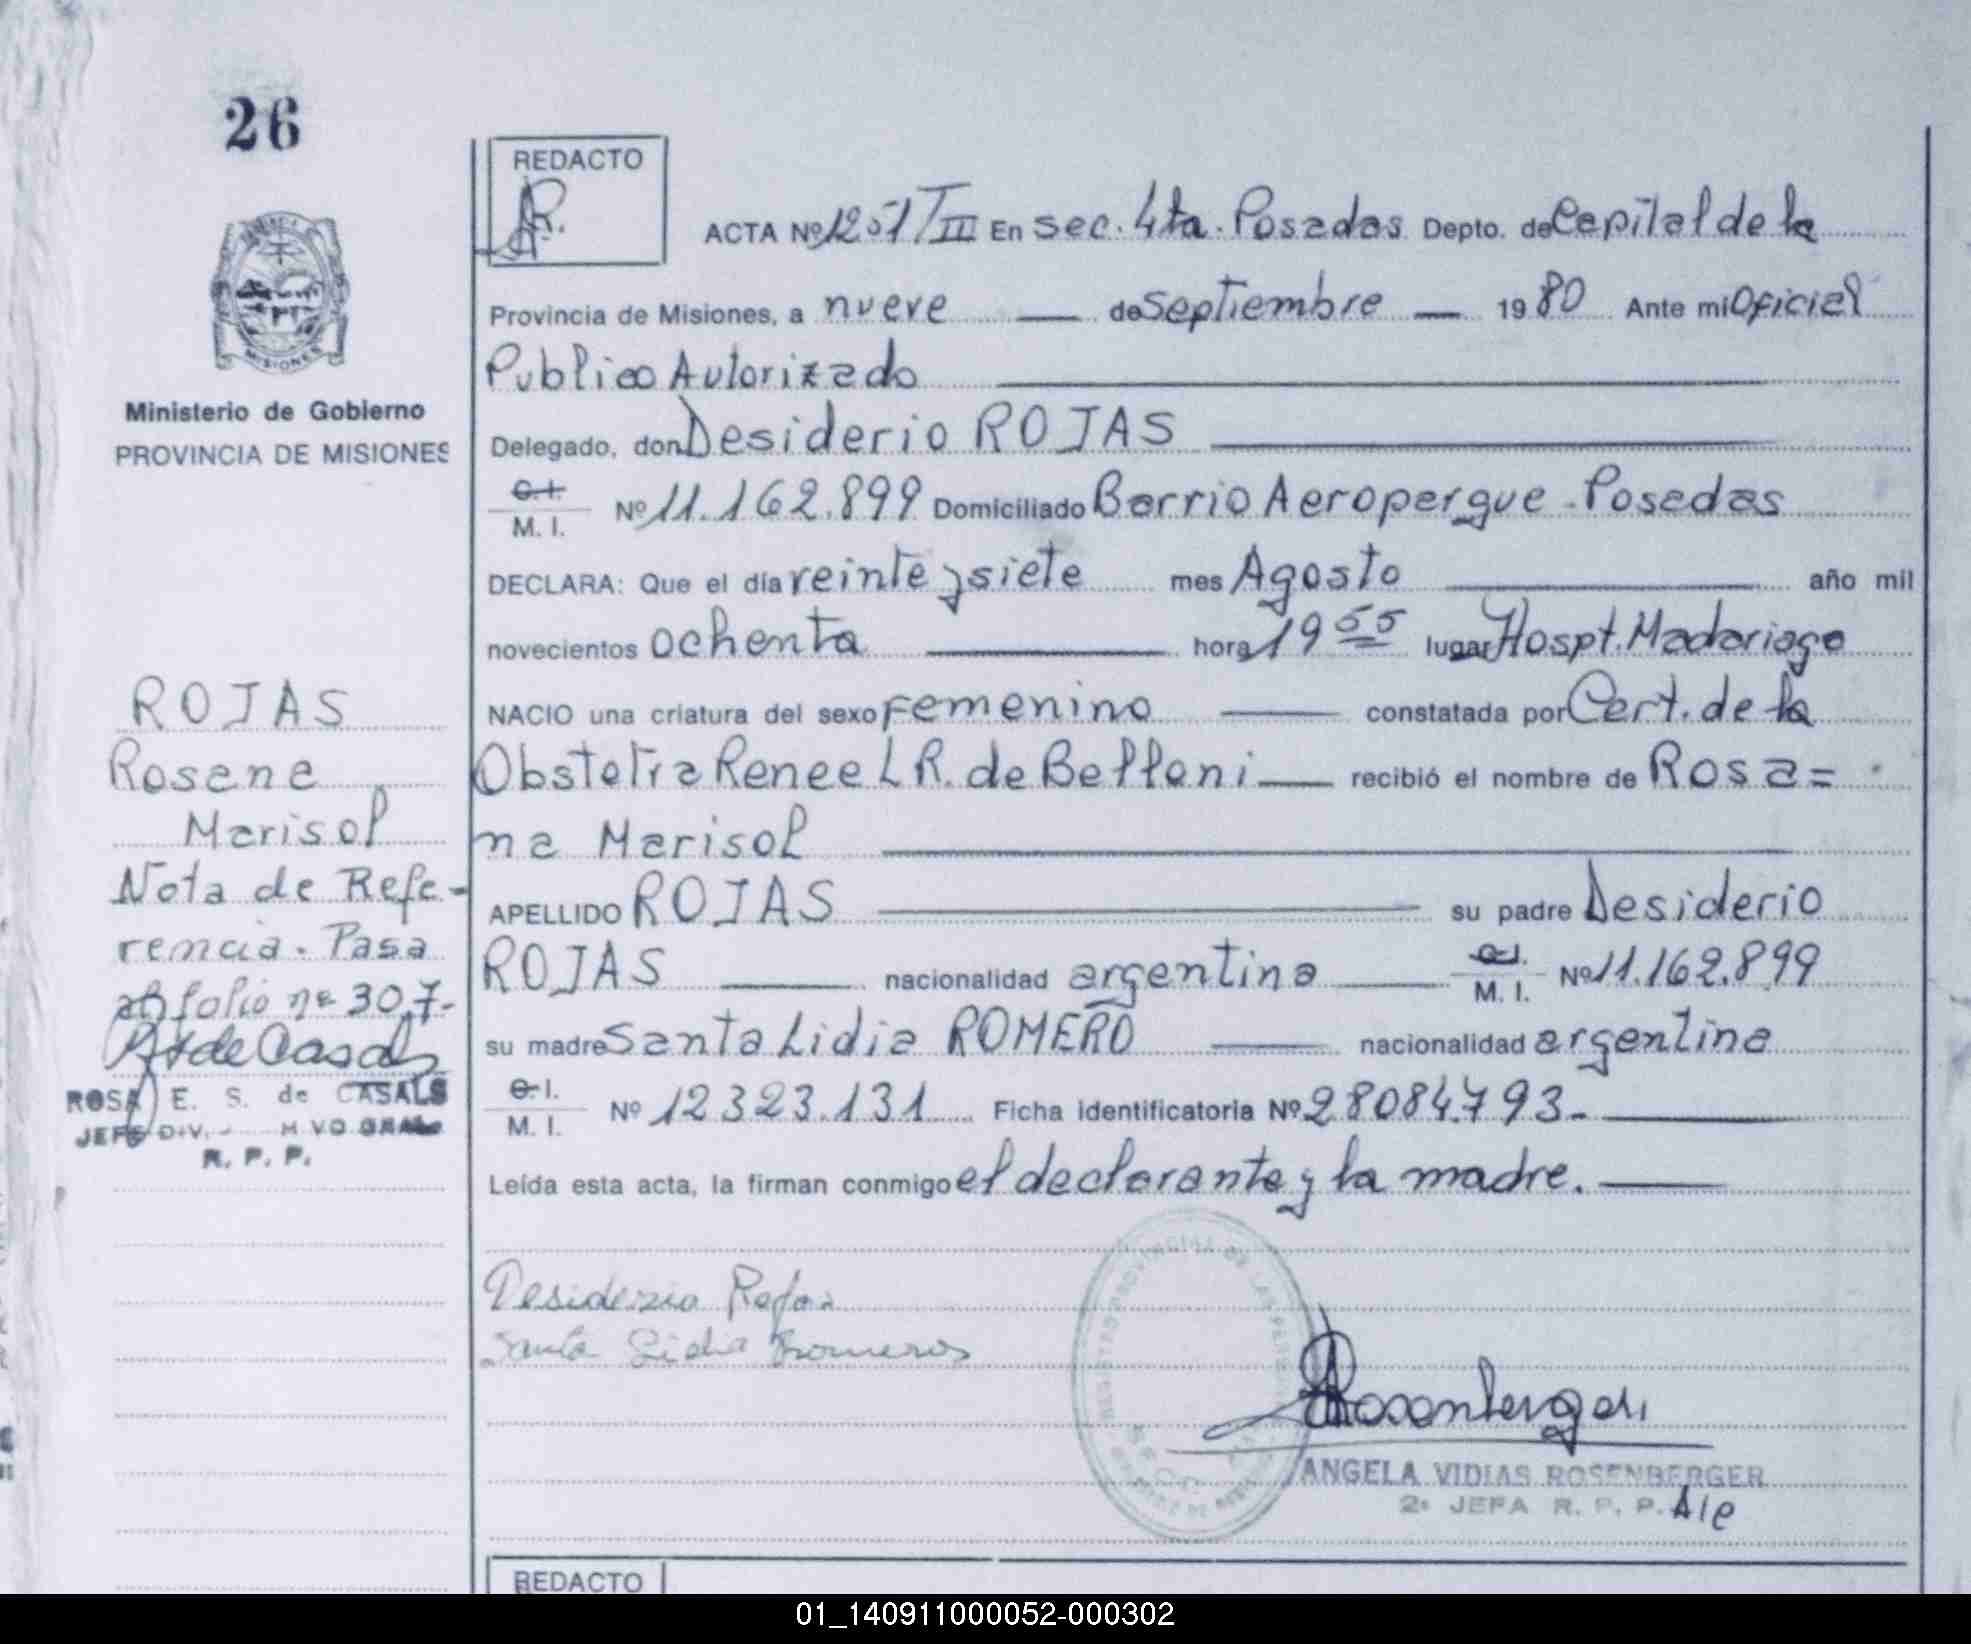 26
Ministerio de Gobierno
PROVINCIA DE MISIONES
ROJAS
Rosana
Marisol
Nota de Refe-
rencia. Pasa
al folio nº 307-
R S de Casals
ROSA E. S. de CASALS
JEFE DIV.
R. P. P.
REDACTO
ACTA Nº 1251/III En sec. 4ta. Posadas Depto. de Capital de la
Provincia de Misiones, a nueve — de septiembre — 1980 Ante mi Oficial
Publico Autorizado
Delegado, don Desiderio ROJAS
C.I. M. I. Nº 11.162.899 Domiciliado Barrio Aeroparque - Posadas
DECLARA: Que el día veinte y siete mes Agosto año mil
novecientos ochenta hora 19 55 lugar Hospt. Madariaga
NACIO una criatura del sexo femenino constatada por Cert. de la
Obstetra Renee L R. de Belloni recibió el nombre de Rosa=
na Marisol
APELLIDO ROJAS su padre Desiderio
ROJAS nacionalidad argentina C.I. M. I. Nº 11.162.899
su madre Santa Lidia ROMERO nacionalidad argentina
C.I. M. I. Nº 12323.131 Ficha identificatoria Nº 28084.793-
Leída esta acta, la firman conmigo el declarante y la madre.
Desiderio Rojas
Santa Lidia Romero
Rosenberger
ANGELA VIDIAS ROSENBERGER
2º JEFA R. P. P. A/c
REDACTO
01_140911000052-000302